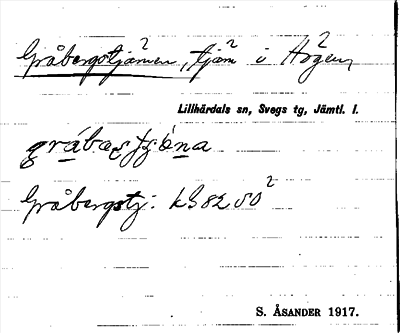 Gråbergstjärnen, tjärn i Högen,
Lillhärdals sn, Svegs tg, Jämtl. l.
Gråbergstj: kB 82 SO
S. ÅSANDER 1917.